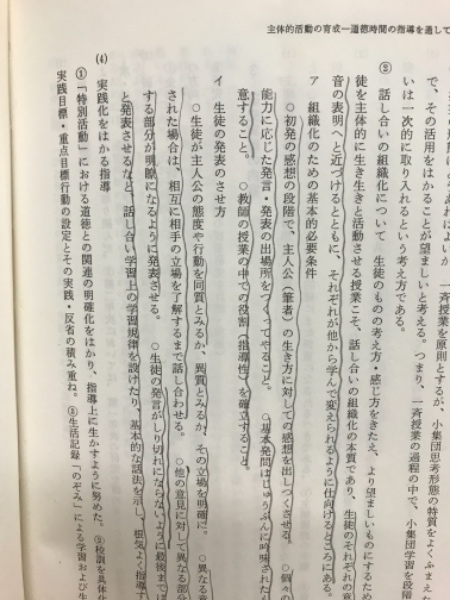 主体的活動の育成―道徳時間の指導を通して
一斉授業を原則とするが、小集団思考形態の特質をよくふまえ
で、その活用をはかることが望ましいと考える。つまり、一斉授業の過程の中で、小集団学習を段階
いは一次的に取り入れるという考え方である。
② 話し合いの組織化について 生徒のものの考え方・感じ方をきたえ、より望ましいものにするため
徒を主体的に生き生きと活動させる授業こそ、話し合いの組織化の本質であり、生徒のそれぞれの意
音の表明へと近づけるとともに、それぞれが他から学んで変えられるように仕向けるところにある。
ア 組織化のための基本的必要条件
○初発の感想の段階で、主人公(筆者)の生き方に対しての感想を出しつくさせる。 ○個々の
能力に応じた発言・発表の出場所をつくってやること。 ○基本発問はじゅうぶんに吟味された
意すること。 ○教師の授業の中での役割(指導性)を確立すること。
イ 生徒の発表のさせ方
○生徒が主人公の態度や行動を同質とみるか、異質とみるか、その立場を明確に。 ○異なる意
された場合は、相互に相手の立場を了解するまで話し合わせる。 ○他の意見に対して異なる部分
する部分が明瞭になるように発表させる。 ○生徒の発言がしり切れにならないように最後まで
と発表させるなど、話し合い学習上の学習規律を設けたり、基本的な話法を示し、根気よく指導
(4) 実践化をはかる指導
①「特別活動」における道徳との関連の明確化をはかり、指導上に生かすように努めた。 ②校訓を具体化
実践目標・重点目標行動の設定とその実践・反省の積み重ね。 ③生活記録「のぞみ」による学習および生